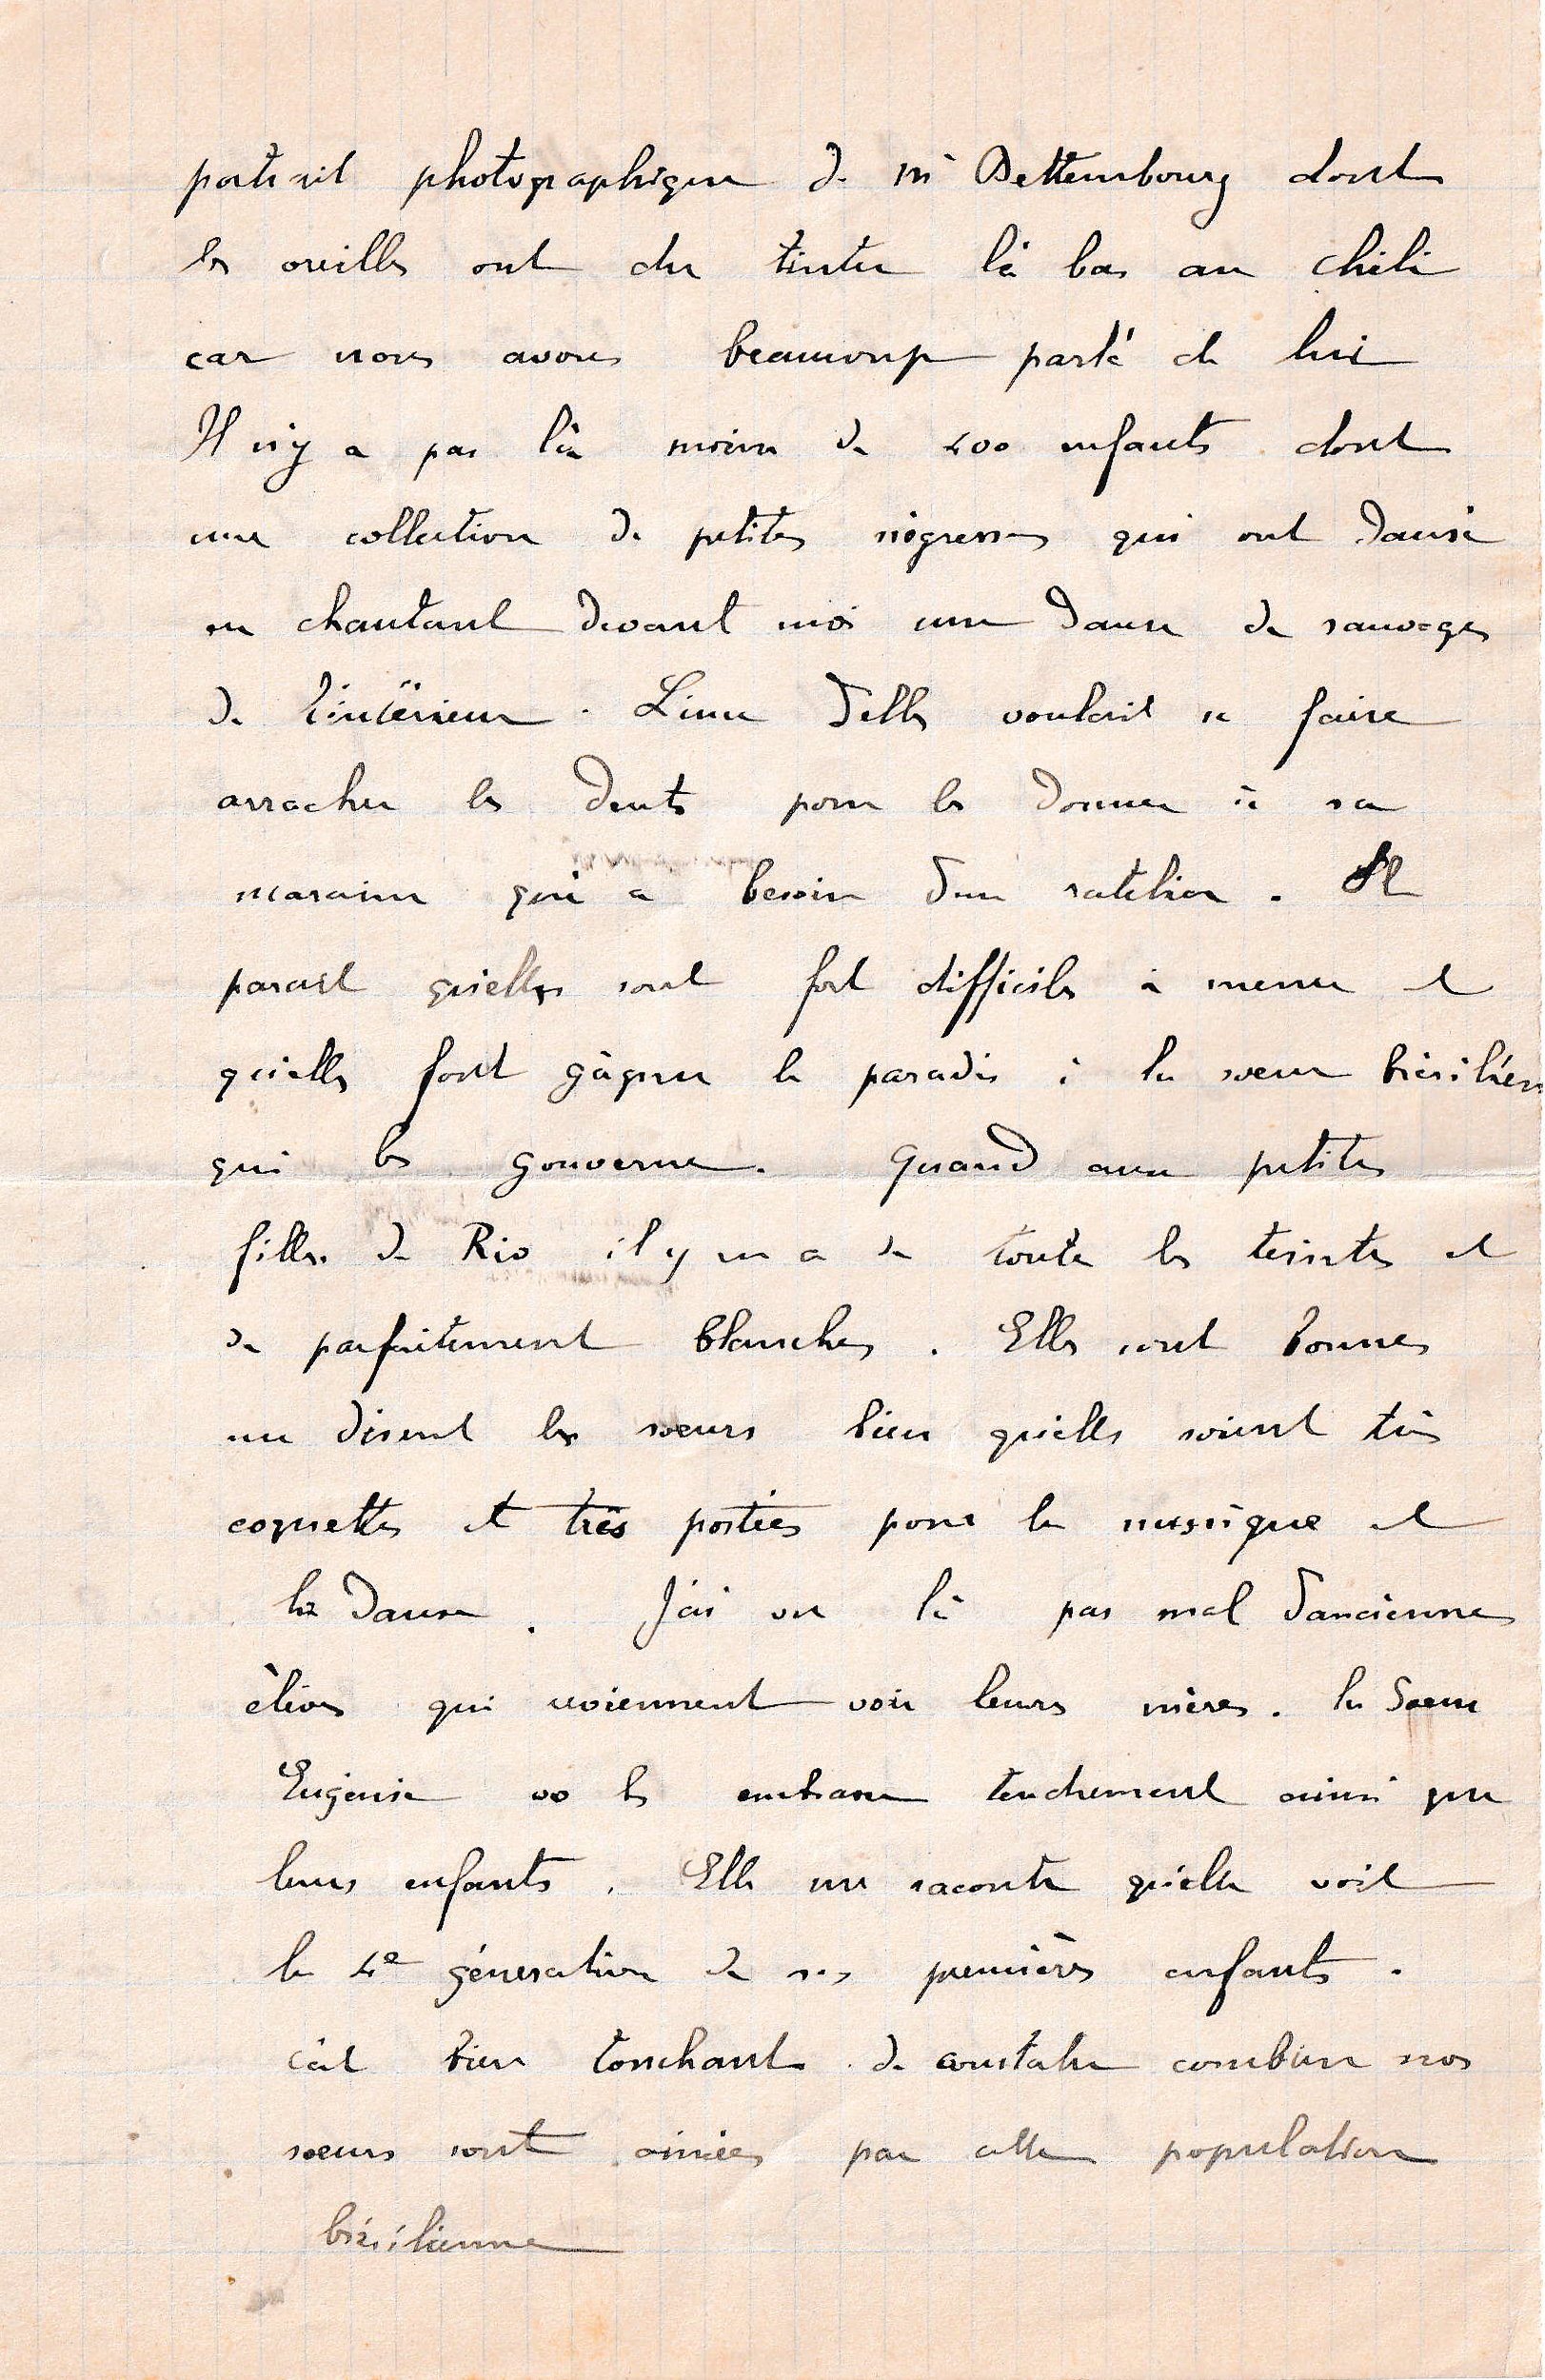 portrait photographique de Mr Dettembourg dont
les oreilles ont du tinter là bas au Chili
car nous avons beaucoup parlé de lui
Il n'y a pas là moins de 400 enfants dont
une collection de petites négresses qui ont dansé
en chantant devant moi une danse de sauvages
de l'intérieur. L'une d'elles voulait se faire
arracher les dents pour les donner à sa
maraine qui a besoin d'un ratelier. Il
parait qu'elles sont fort difficiles à mener et
qu'elles font gâgner le paradis à la soeur brésilien
qui les gouverne. Quand aux petites
filles de Rio il y en a de toute les teintes et
de parfaitement blanches. Elles sont bonnes
me disent les soeurs bien qu'elles soient très
coquettes et très portées pour la musique et
la danse. J'ai vu là pas mal d'anciennes
élèves qui revienment voir leurs mères. la Soeur
Eugénie les embrasse tendrement ainsi que
leurs enfants. Elle me raconte qu'elle voit
la 4e géneration de ses premières enfants.
c'est bien touchant de constater combien nos
soeurs sont aimées par cette population
brésilienne